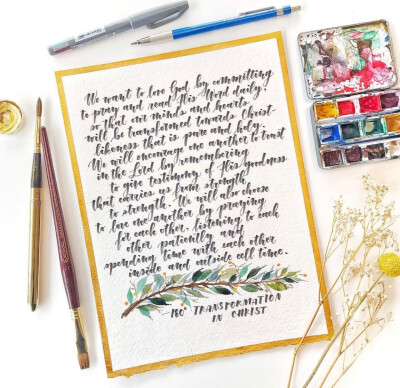 We want to love God by committing
to pray and read His Word daily.
so that our minds and hearts
will be transformed towards Christ-
likeness that is pure and holy.
We will encourage one another to trust
in the Lord by remembering
to give testimony of His goodness
that carries us from strength
to strength. We will also choose
to love one another by praying
for each other, listening to each
other patiently and
spending time with each other
inside and outside cell time.
180° TRANSFORMATION
IN CHRIST